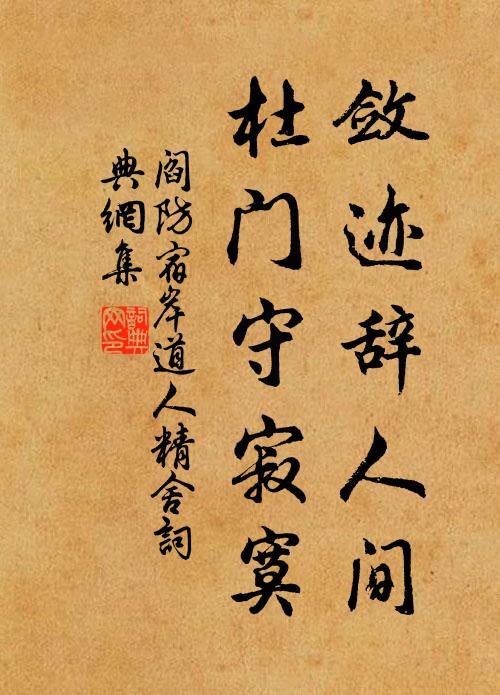 敛迹辞人间
杜门守寂寞
阎防宿岸道人精舍詞
典網集
詞典网印